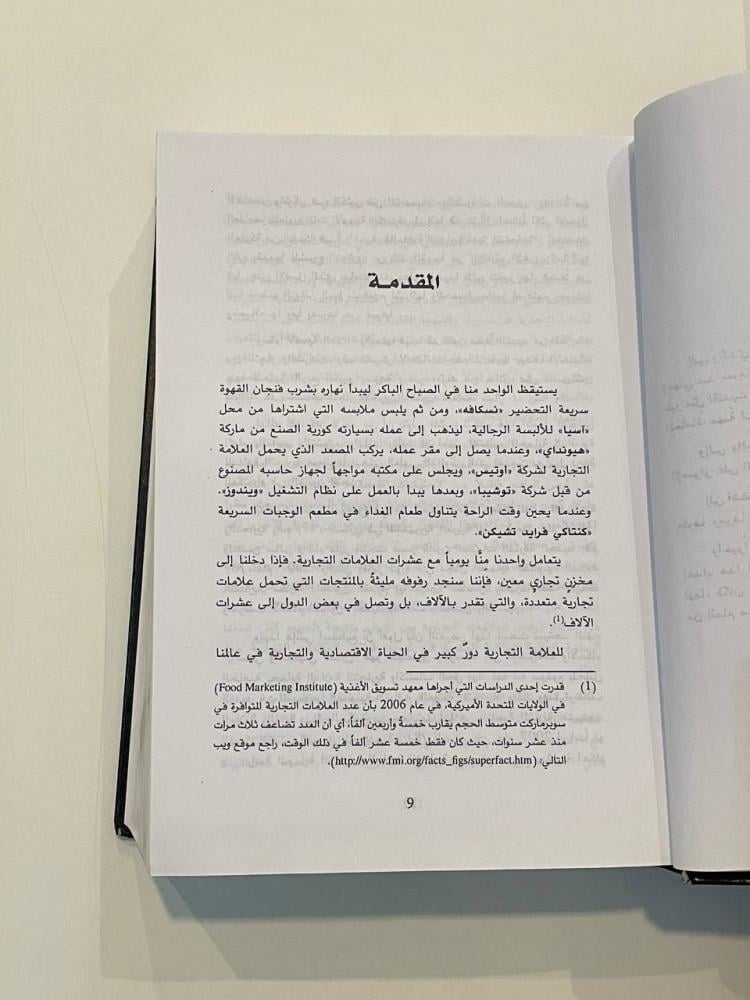 المقدمة
يستيقظ الواحد منا في الصباح الباكر ليبدأ نهاره بشرب فنجان القهوة
سريعة التحضير «نسكافه»، ومن ثم يلبس ملابسه التي اشتراها من محل
«آسيا» للألبسة الرجالية، ليذهب إلى عمله بسيارته كورية الصنع من ماركة
«هيونداي»، وعندما يصل إلى مقر عمله، يركب المصعد الذي يحمل العلامة
التجارية لشركة «أوتيس»، ويجلس على مكتبه مواجهاً لجهاز حاسبه المصنوع
من قبل شركة «توشيبا»، وبعدها يبدأ بالعمل على نظام التشغيل «ويندوز».
وعندما يحين وقت الراحة يتناول طعام الغداء في مطعم الوجبات السريعة
«كنتاكي فرايد تشيكن».
يتعامل واحدنا مِنَّا يومياً مع عشرات العلامات التجارية. فإذا دخلنا إلى
مخزنٍ تجاريٍ معين، فإننا سنجد رفوفه مليئةً بالمنتجات التي تحمل علامات
تجارية متعددة، والتي تقدر بالآلاف، بل وتصل في بعض الدول إلى عشرات
الآلاف(1).
للعلامة التجارية دورٌ كبير في الحياة الاقتصادية والتجارية في عالمنا
(1) قدرت إحدى الدراسات التي أجراها معهد تسويق الأغذية (Food Marketing Institute)
في الولايات المتحدة الأميركية، في عام 2006 بأن عدد العلامات التجارية المتوافرة في
سوبرماركت متوسط الحجم يقارب خمسةً وأربعين ألفاً، أي أن العدد تضاعف ثلاث مرات
منذ عشر سنوات، حيث كان فقط خمسة عشر ألفاً في ذلك الوقت، راجع موقع ويب
التالي: (http://www.fmi.org/facts_figs/superfact.htm).
9